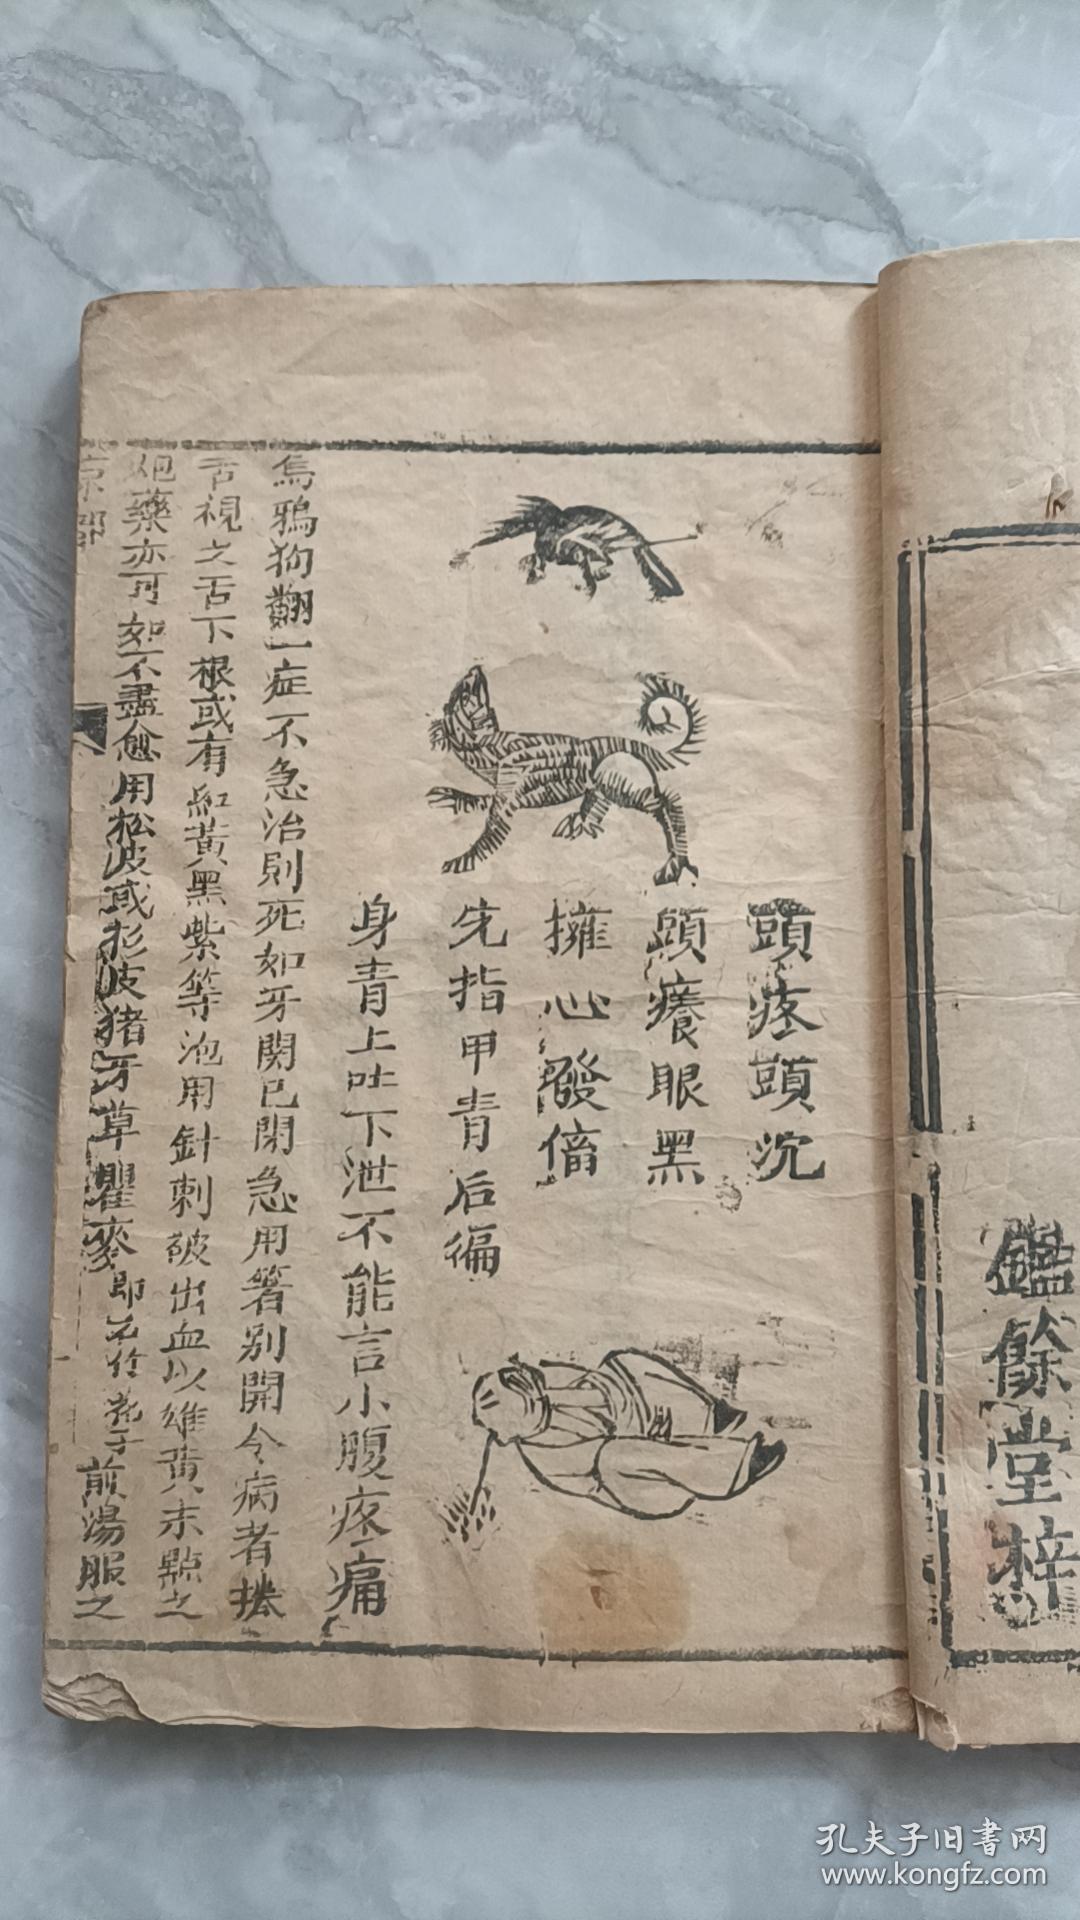 鑑餘堂梓
頭疼頭沉
頭癢眼黑
擁心發㑊
先指甲青后徧
身青上吐下泄不能言小腹疼痛
烏鴉狗翻一症不急治則死如牙関已閉急用箸别開令病者捲
舌視之舌下根或有紅黃黑紫等泡用針刺破出血以雄黃末點之
炮藥亦可如不盡愈用松皮或杉皮猪牙草瞿麥即石竹花子煎湯服之
京部
孔夫子旧書网
www.kongfz.com